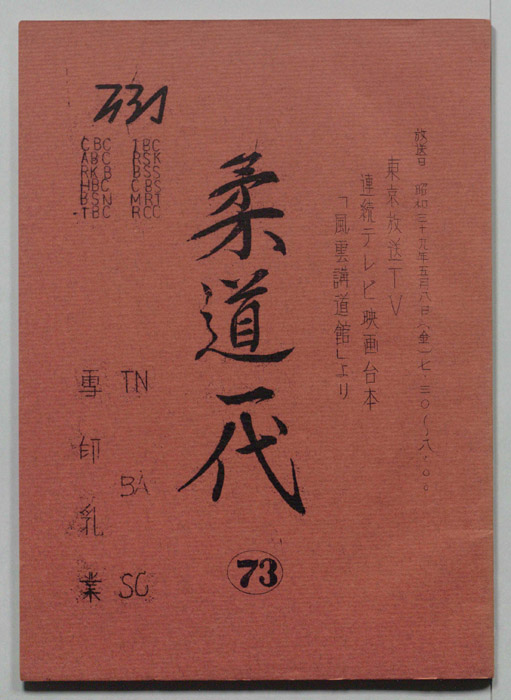 放送日 昭和三十九年五月八日(金)七.三〇〜八.〇〇
東京放送TV
連続テレビ映画台本
「風雲講道館」より
柔道一代
73
CBC IBC
ABC RSK
RKB BSS
HBC CBS
BSN MRT
TBC RCC
TN BA SC
雪印乳業